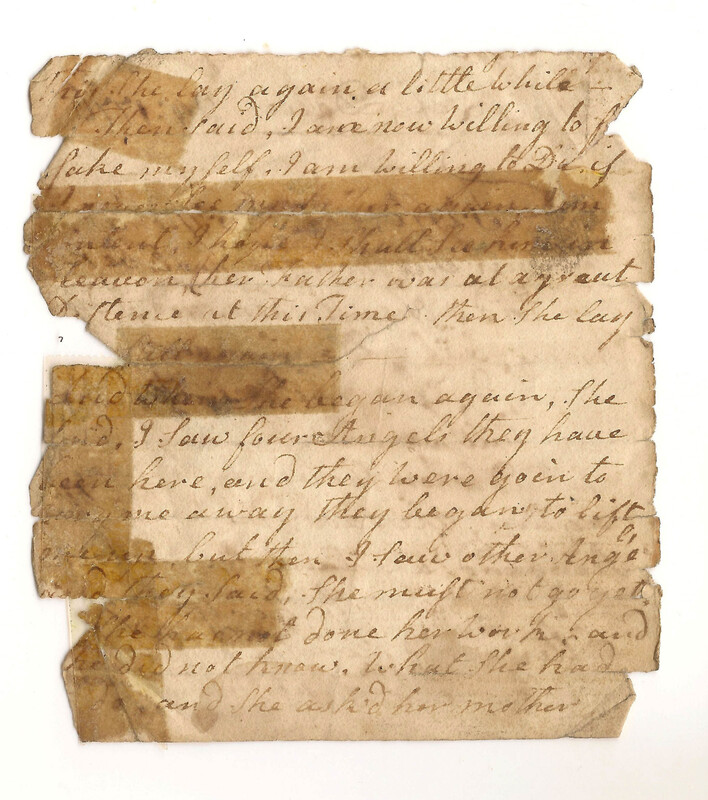 this She lay again a little while
Then said, I am now willing to f
sake myself, I am willing to Die, if
I never See my father again I am
Content, I hope I shall See him in
Heaven, (her Father was at a great
Distence at this Time. then She lay
Still again
And when She began again, She
Said, I Saw four Angels they have
been here, and they were goin to
carry me away they began to lift
me up, but then I Saw other Angels
and they Said, She must not go yet,
She has not done her work, and
She did not know, What She had
to do, and She ask'd her mother